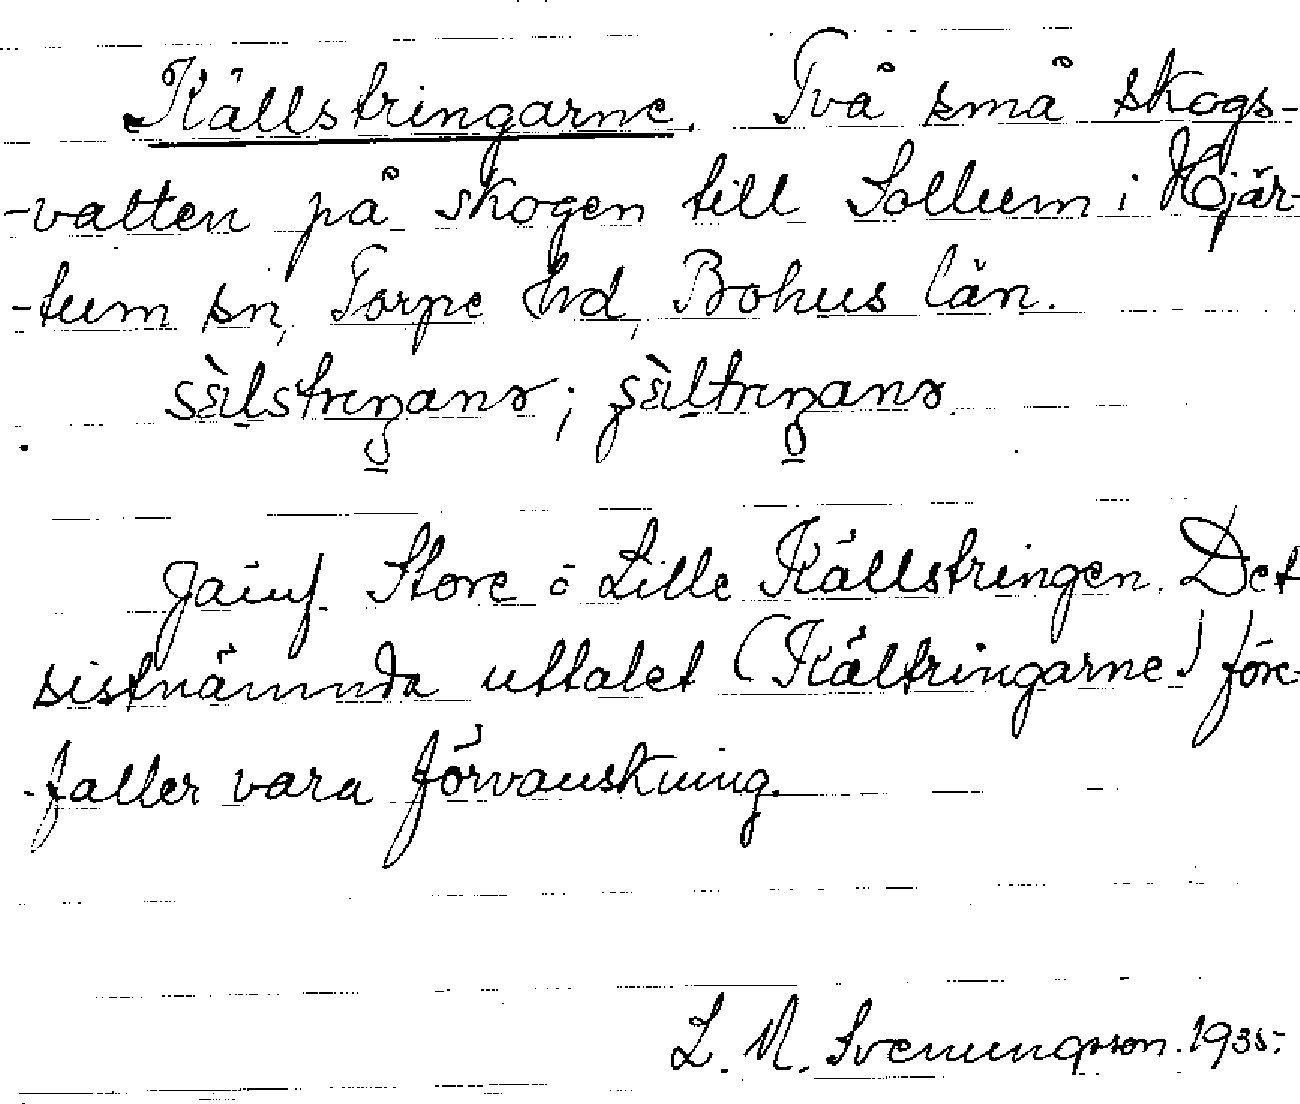 Källstringarne. Två små skogs-
-vatten på skogen till Sollum i Hjär-
-tum sn, Torpe hrd, Bohus län.
Jämf. Store o Lille Källstringen. Det
sistnämnda uttalet (Kältringarne) före-
-faller vara förvanskning.
L. M. Svenungsson. 1935.